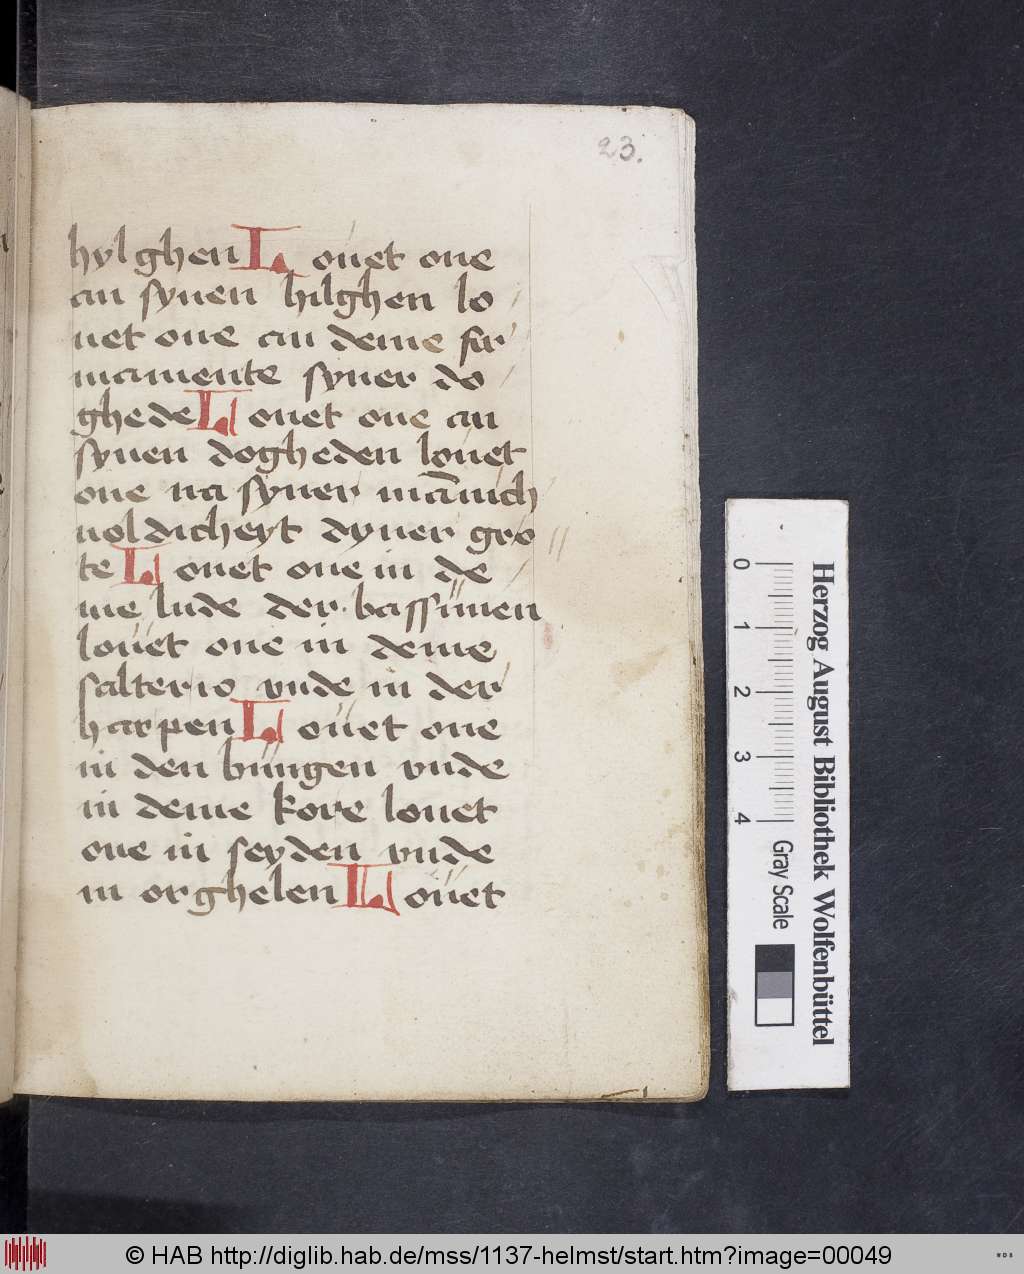 23.
hylghen Louet one
an synen hilghen lo
uet one an deme fir
mamente syner do
ghede Louet one an
synen dogheden louet
one na syner ma᷑nich
uoldicheyt dyner gro
te Louet one in de
me lude der bassunen
louet one in deme
salterio vnde in der
harpen Louet one
in den bungen vnde
in deme kore louet
one in seyden vnde
in orghelen Louet
Herzog August Bibliothek Wolfenbüttel
0 1 2 3 4
Gray Scale
© HAB http://diglib.hab.de/mss/1137-helmst/start.htm?image=00049